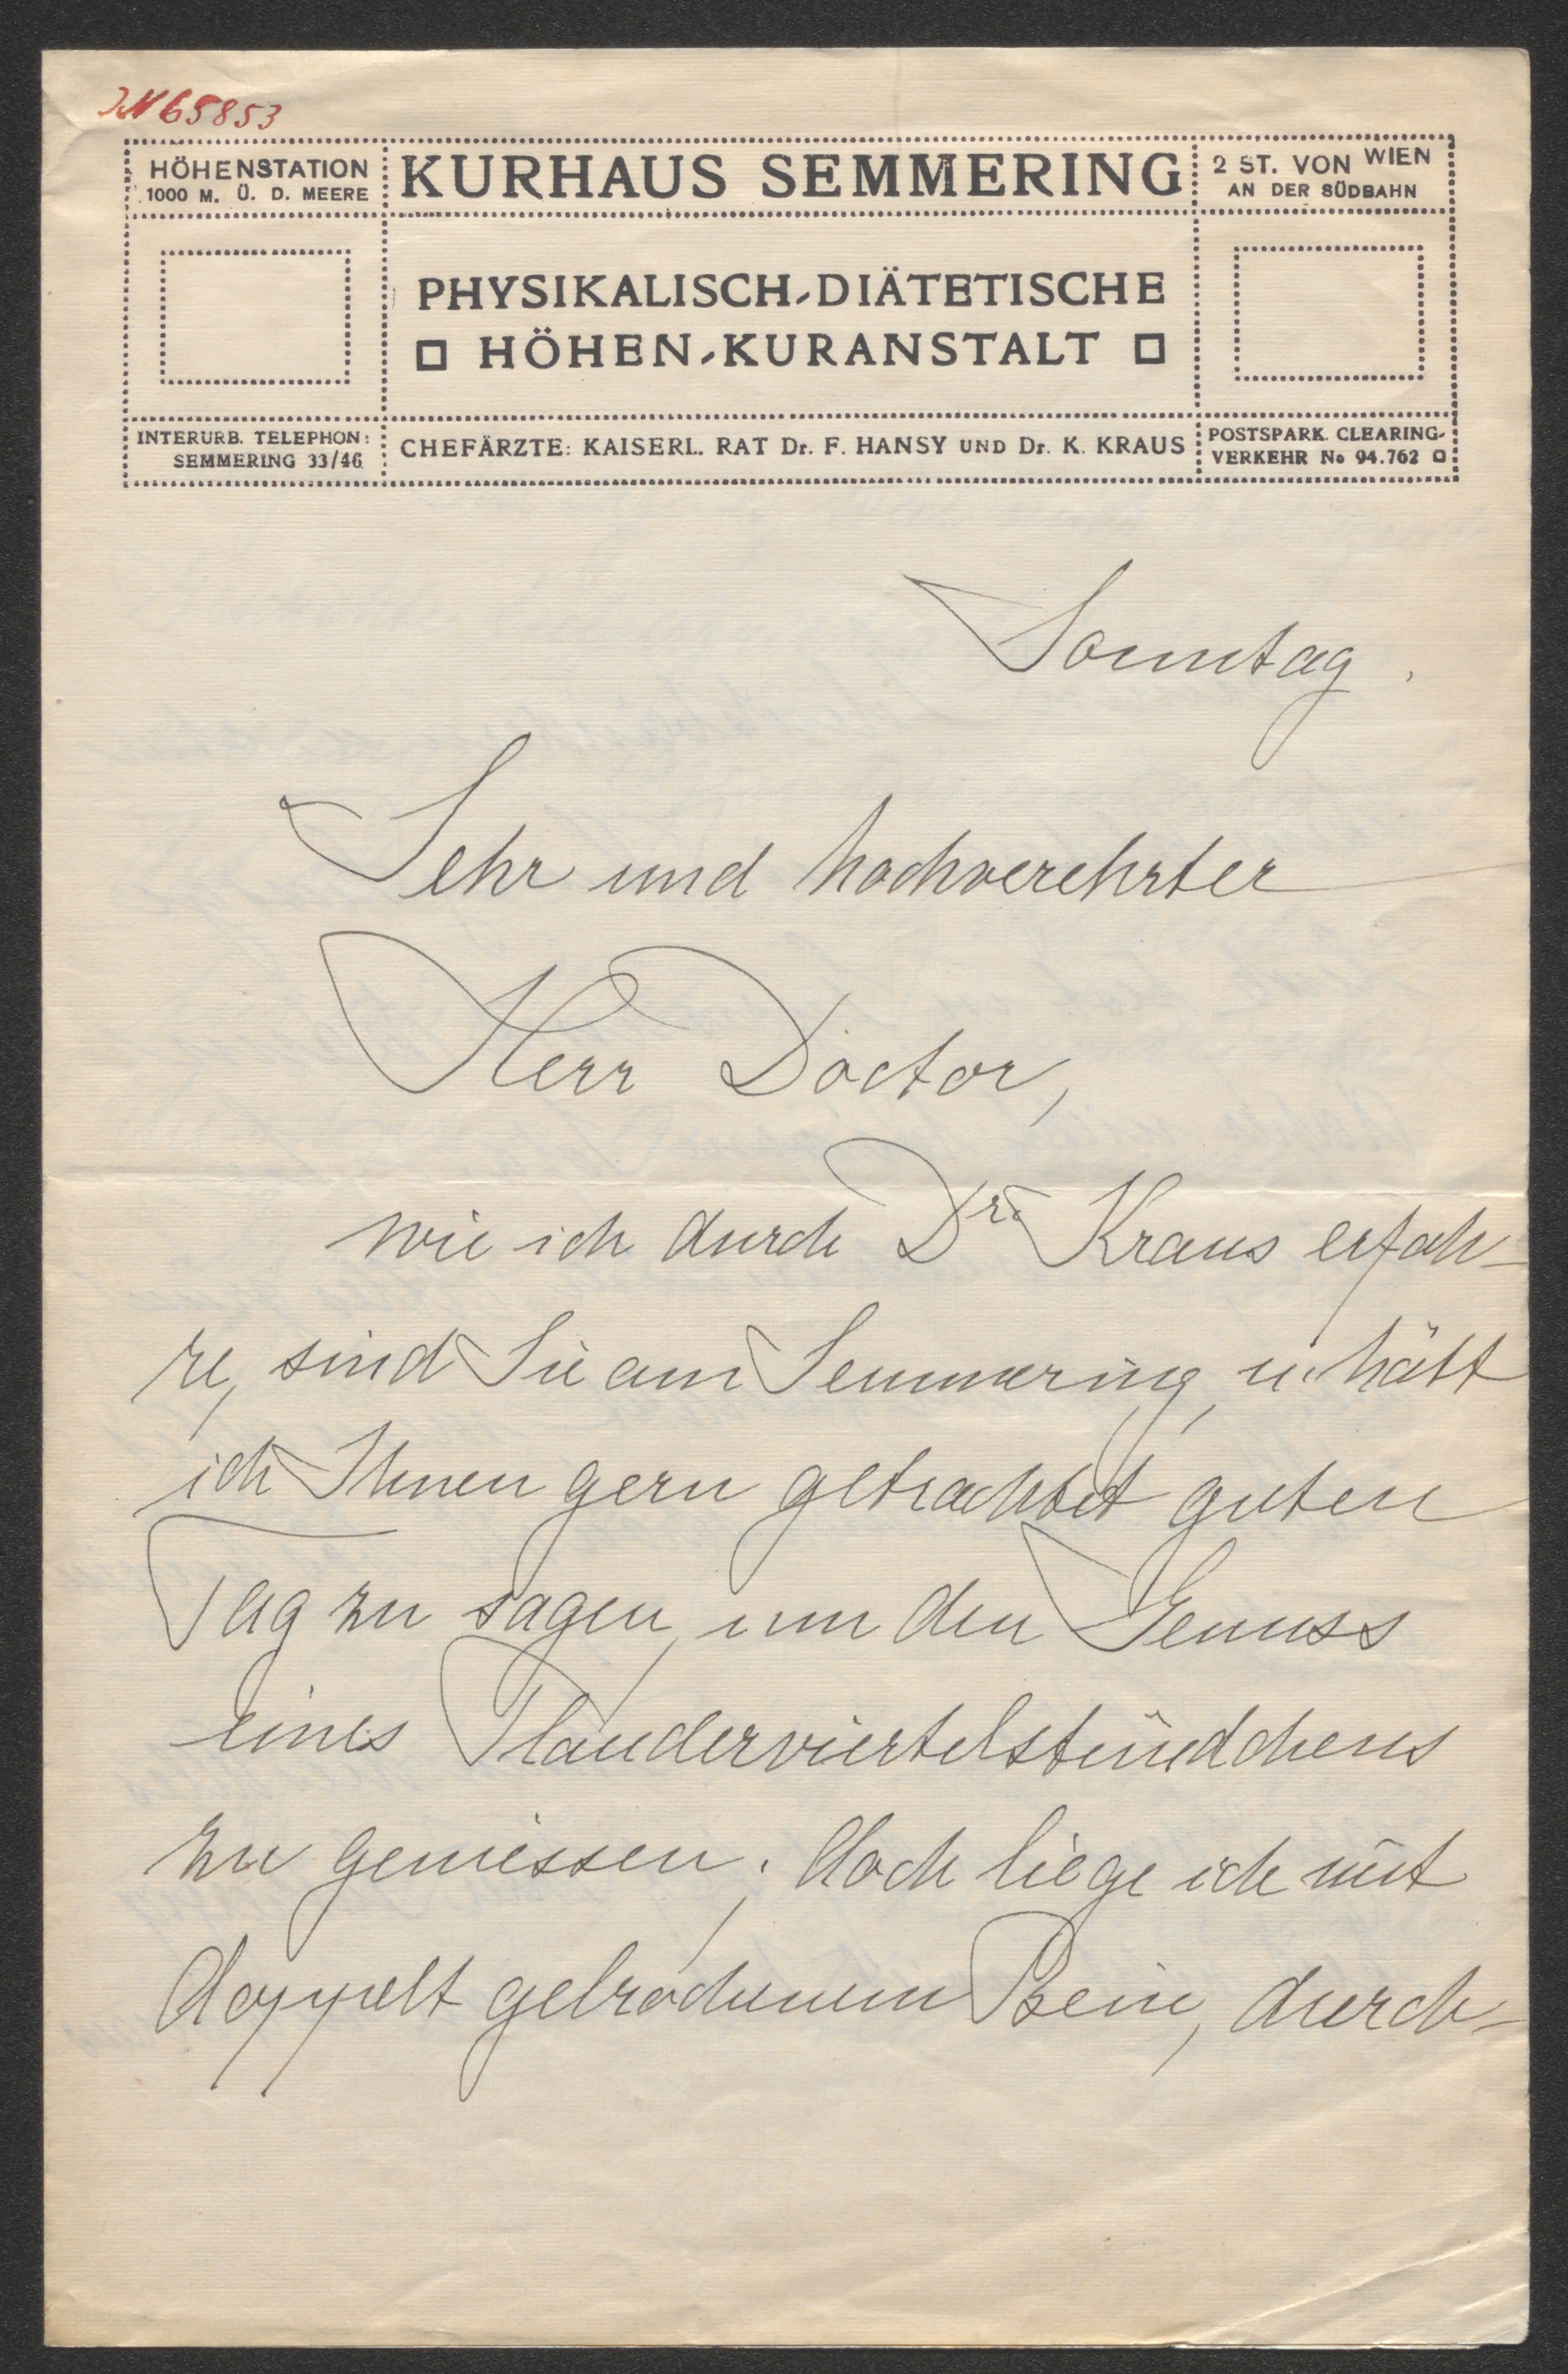 IN 65853
HÖHENSTATION
1000 M. Ü. D. MEERE
KURHAUS SEMMERING
2 ST. VON WIEN
AN DER SÜDBAHN
PHYSIKALISCH-DIÄTETISCHE
HÖHEN-KURANSTALT
INTERURB. TELEPHON:
SEMMERING 33/46
CHEFÄRZTE: KAISERL. RAT Dr. F. HANSY UND Dr. K. KRAUS
POSTSPARK. CLEARING-
VERKEHR No 94.762
Sonntag.
Sehr und hochverehrter
Herr Doctor,
wie ich durch Dr. Kraus erfah-
re, sind Sie am Semmering, u. hätt
ich Ihnen gern getrachtet guten
Tag zu sagen, um den Genuss
eines Plauderviertelstündchens
zu geniessen; doch liege ich mit
doppelt gebrochenem Bein, durch-